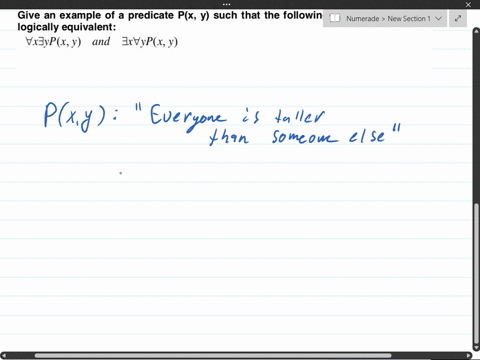 Give an example of a predicate P(x, y) such that the following
logically equivalent:
∀x∃yP(x, y) and ∃x∀yP(x, y)
Numerade > New Section 1
P(x,y) : "Everyone is taller
than someone else"